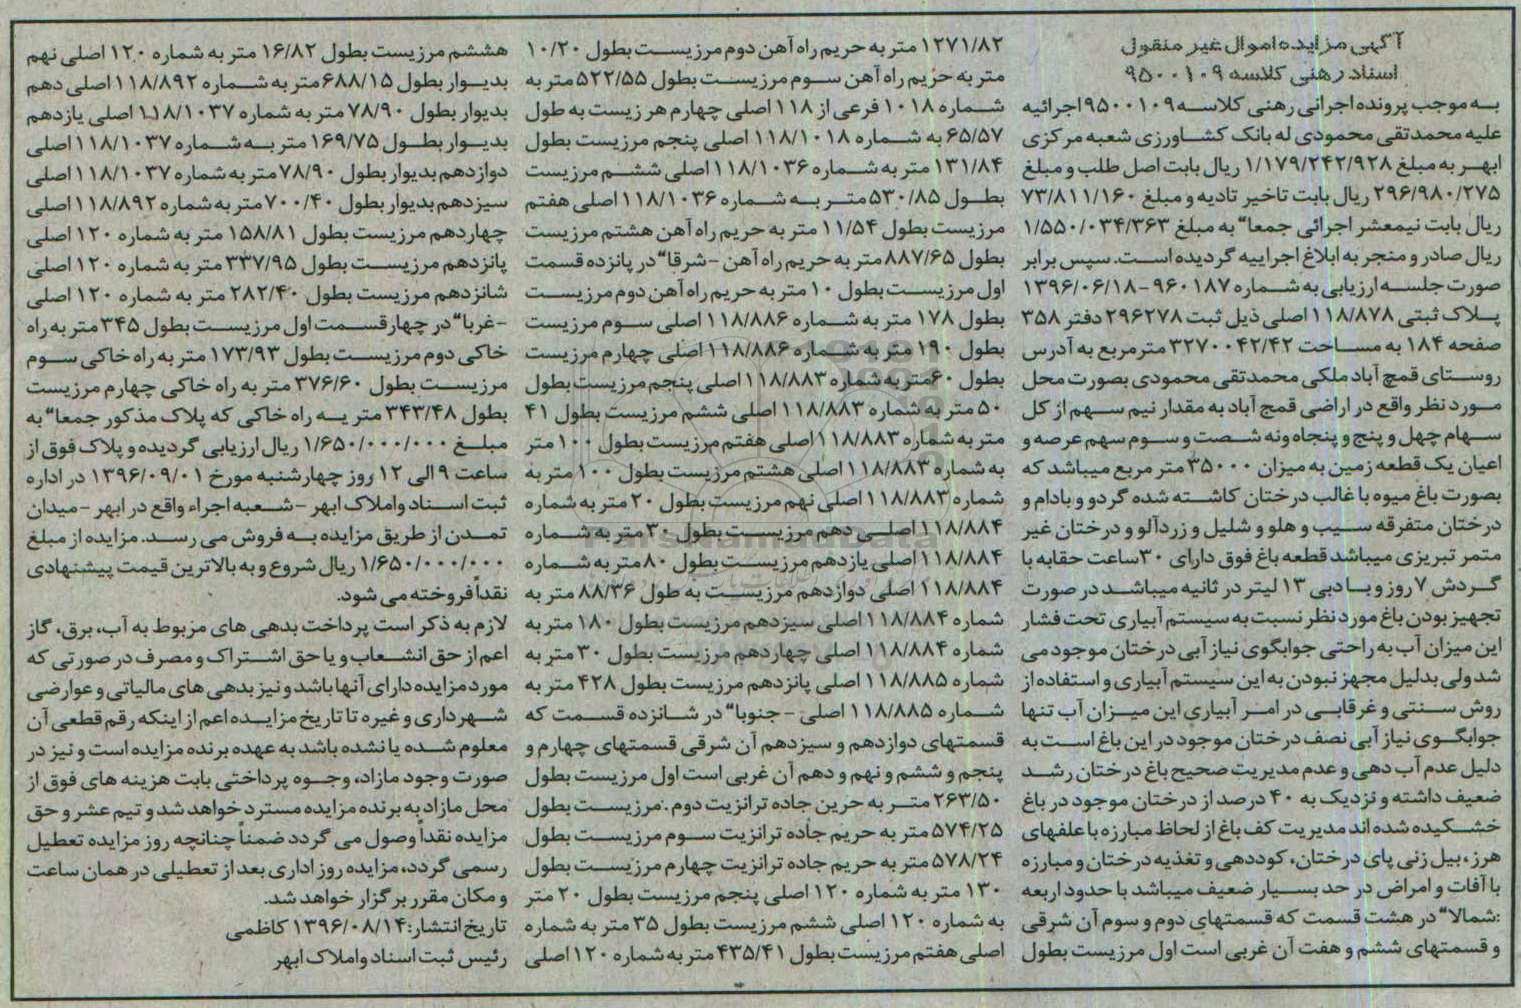 آگهی مزایده اموال غیر منقول
اسناد رهنی کلاسه ۹۵۰۰۱۰۹
به موجب پرونده اجرائی رهنی کلاسه ۹۵۰۰۱۰۹ اجرائیه
علیه محمدتقی محمودی له بانک کشاورزی شعبه مرکزی
ابهر به مبلغ ۱/۱۷۹/۲۴۲/۹۲۸ ریال بابت اصل طلب و مبلغ
۲۹۶/۹۸۰/۲۷۵ ریال بابت تاخیر تادیه و مبلغ ۷۳/۸۱۱/۱۶۰
ریال بابت نیمعشر اجرائی جمعا" به مبلغ ۱/۵۵۰/۰۳۴/۳۶۳
ریال صادر و منجر به ابلاغ اجراییه گردیده است. سپس برابر
صورت جلسه ارزیابی به شماره ۹۶۰۱۸۷-۱۳۹۶/۰۶/۱۸
پلاک ثبتی ۱۱۸/۸۷۸ اصلی ذیل ثبت ۲۹۶۲۷۸ دفتر ۳۵۸
صفحه ۱۸۴ به مساحت ۳۲۷۰۰۴۲/۴۲ مترمربع به آدرس
روستای قمچ آباد ملکی محمدتقی محمودی بصورت محل
مورد نظر واقع در اراضی قمچ آباد به مقدار نیم سهم از کل
سهام چهل و پنج و پنجاه ونه شصت و سوم سهم عرصه و
اعیان یک قطعه زمین به میزان ۳۵۰۰۰ متر مربع میباشد که
بصورت باغ میوه با غالب درختان کاشته شده گردو و بادام و
درختان متفرقه سیب و هلو و شلیل و زردآلو و درختان غیر
متمر تبریزی میباشد قطعه باغ فوق دارای ۳۰ ساعت حقابه با
گردش ۷ روز و با دبی ۱۳ لیتر در ثانیه میباشد در صورت
تجهیز بودن باغ مورد نظر نسبت به سیستم آبیاری تحت فشار
این میزان آب به راحتی جوابگوی نیاز آبی درختان موجود می
شد ولی بدلیل مجهز نبودن به این سیستم آبیاری و استفاده از
روش سنتی و غرقابی در امر آبیاری این میزان آب تنها
جوابگوی نیاز آبی نصف درختان موجود در این باغ است به
دلیل عدم آب دهی و عدم مدیریت صحیح باغ درختان رشد
ضعیف داشته و نزدیک به ۴۰ درصد از درختان موجود در باغ
خشکیده شده اند مدیریت کف باغ از لحاظ مبارزه با علفهای
هرز، بیل زنی پای درختان، کوددهی و تغذیه درختان و مبارزه
با آفات و امراض در حد بسیار ضعیف میباشد با حدود اربعه
:شمالا" در هشت قسمت که قسمتهای دوم و سوم آن شرقی
و قسمتهای ششم و هفت آن غربی است اول مرزیست بطول
۱۲۷۱/۸۲ متر به حریم راه آهن دوم مرزیست بطول ۱۰/۲۰
متر به حریم راه آهن سوم مرزیست بطول ۵۲۲/۵۵ متر به
شماره ۱۰۱۸ فرعی از ۱۱۸ اصلی چهارم هرزیست به طول
۶۵/۵۷ به شماره ۱۱۸/۱۰۱۸ اصلی پنجم مرزیست بطول
۱۳۱/۸۴ متر به شماره ۱۱۸/۱۰۳۶ اصلی ششم مرزیست
بطول ۵۳۰/۸۵ متر به شماره ۱۱۸/۱۰۳۶ اصلی هفتم
مرزیست بطول ۱۱/۵۴ متر به حریم راه آهن هشتم مرزیست
بطول ۸۸۷/۶۵ متر به حریم راه آهن -شرقا" در پانزده قسمت
اول مرزیست بطول ۱۰ متر به حریم راه آهن دوم مرزیست
بطول ۱۷۸ متر به شماره ۱۱۸/۸۸۶ اصلی سوم مرزیست
بطول ۱۹۰ متر به شماره ۱۱۸/۸۸۶ اصلی چهارم مرزیست
بطول ۶۰ متر به شماره ۱۱۸/۸۸۳ اصلی پنجم مرزیست بطول
۵۰ متر به شماره ۱۱۸/۸۸۳ اصلی ششم مرزیست بطول ۴۱
متر به شماره ۱۱۸/۸۸۳ اصلی هفتم مرزیست بطول ۱۰۰ متر
به شماره ۱۱۸/۸۸۳ اصلی هشتم مرزیست بطول ۱۰۰ متر به
شماره ۱۱۸/۸۸۳ اصلی نهم مرزیست بطول ۲۰ متر به شماره
۱۱۸/۸۸۴ اصلی دهم مرزیست بطول ۳۰ متر به شماره
۱۱۸/۸۸۴ اصلی یازدهم مرزیست بطول ۸۰ متر به شماره
۱۱۸/۸۸۴ اصلی دوازدهم مرزیست به طول ۸۸/۳۶ متر به
شماره ۱۱۸/۸۸۴ اصلی سیزدهم مرزیست بطول ۱۸۰ متر به
شماره ۱۱۸/۸۸۴ اصلی چهاردهم مرزیست بطول ۳۰ متر به
شماره ۱۱۸/۸۸۵ اصلی پانزدهم مرزیست بطول ۴۲۸ متر به
شماره ۱۱۸/۸۸۵ اصلی - جنوبا" در شانزده قسمت که
قسمتهای دوازدهم و سیزدهم آن شرقی قسمتهای چهارم و
پنجم و ششم و نهم و دهم آن غربی است اول مرزیست بطول
۲۶۳/۵۰ متر به حرین جاده ترانزیت دوم .مرزیست بطول
۵۷۴/۲۵ متر به حریم جاده ترانزیت سوم مرزیست بطول
۵۷۸/۲۴ متر به حریم جاده ترانزیت چهارم مرزیست بطول
۱۳۰ متر به شماره ۱۲۰ اصلی پنجم مرزیست بطول ۲۰ متر
به شماره ۱۲۰ اصلی ششم مرزیست بطول ۳۵ متر به شماره
اصلی هفتم مرزیست بطول ۴۳۵/۴۱ متر به شماره ۱۲۰ اصلی
هششم مرزیست بطول ۱۶/۸۲ متر به شماره ۱۲۰ اصلی نهم
بدیوار بطول ۶۸۸/۱۵ متر به شماره ۱۱۸/۸۹۲ اصلی دهم
بدیوار بطول ۷۸/۹۰ متر به شماره ۱۱۸/۱۰۳۷ اصلی یازدهم
بدیوار بطول ۱۶۹/۷۵ متر به شماره ۱۱۸/۱۰۳۷ اصلی
دوازدهم بدیوار بطول ۷۸/۹۰ متر به شماره ۱۱۸/۱۰۳۷ اصلی
سیزدهم بدیوار بطول ۷۰۰/۴۰ متر به شماره ۱۱۸/۸۹۲ اصلی
چهاردهم مرزیست بطول ۱۵۸/۸۱ متر به شماره ۱۲۰ اصلی
پانزدهم مرزیست بطول ۳۳۷/۹۵ متر به شماره ۱۲۰ اصلی
شانزدهم مرزیست بطول ۲۸۲/۴۰ متر به شماره ۱۲۰ اصلی
-غربا" در چهار قسمت اول مرزیست بطول ۳۴۵ متر به راه
خاکی دوم مرزیست بطول ۱۷۳/۹۳ متر به راه خاکی سوم
مرزیست بطول ۳۷۶/۶۰ متر به راه خاکی چهارم مرزیست
بطول ۳۴۳/۴۸ متر یه راه خاکی که پلاک مذکور جمعا" به
مبلغ ۱/۶۵۰/۰۰۰/۰۰۰ ریال ارزیابی گردیده و پلاک فوق از
ساعت ۹ الی ۱۲ روز چهارشنبه مورخ ۱۳۹۶/۰۹/۰۱ در اداره
ثبت اسناد واملاک ابهر -شعبه اجراء واقع در ابهر -میدان
تمدن از طریق مزایده به فروش می رسد. مزایده از مبلغ
۱/۶۵۰/۰۰۰/۰۰۰ ریال شروع و به بالاترین قیمت پیشنهادی
نقداً فروخته می شود.
لازم به ذکر است پرداخت بدهی های مربوط به آب، برق، گاز
اعم از حق انشعاب و یا حق اشتراک و مصرف در صورتی که
مورد مزایده دارای آنها باشد و نیز بدهی های مالیاتی و عوارضی
شهرداری و غیره تا تاریخ مزایده اعم از اینکه رقم قطعی آن
معلوم شده یا نشده باشد به عهده برنده مزایده است و نیز در
صورت وجود مازاد، وجوه پرداختی بابت هزینه های فوق از
محل مازاد به برنده مزایده مسترد خواهد شد و نیم عشر و حق
مزایده نقداً وصول می گردد ضمناً چنانچه روز مزایده تعطیل
رسمی گردد، مزایده روز اداری بعد از تعطیلی در همان ساعت
و مکان مقرر برگزار خواهد شد.
تاریخ انتشار: ۱۳۹۶/۰۸/۱۴ کاظمی
رئیس ثبت اسناد واملاک ابهر